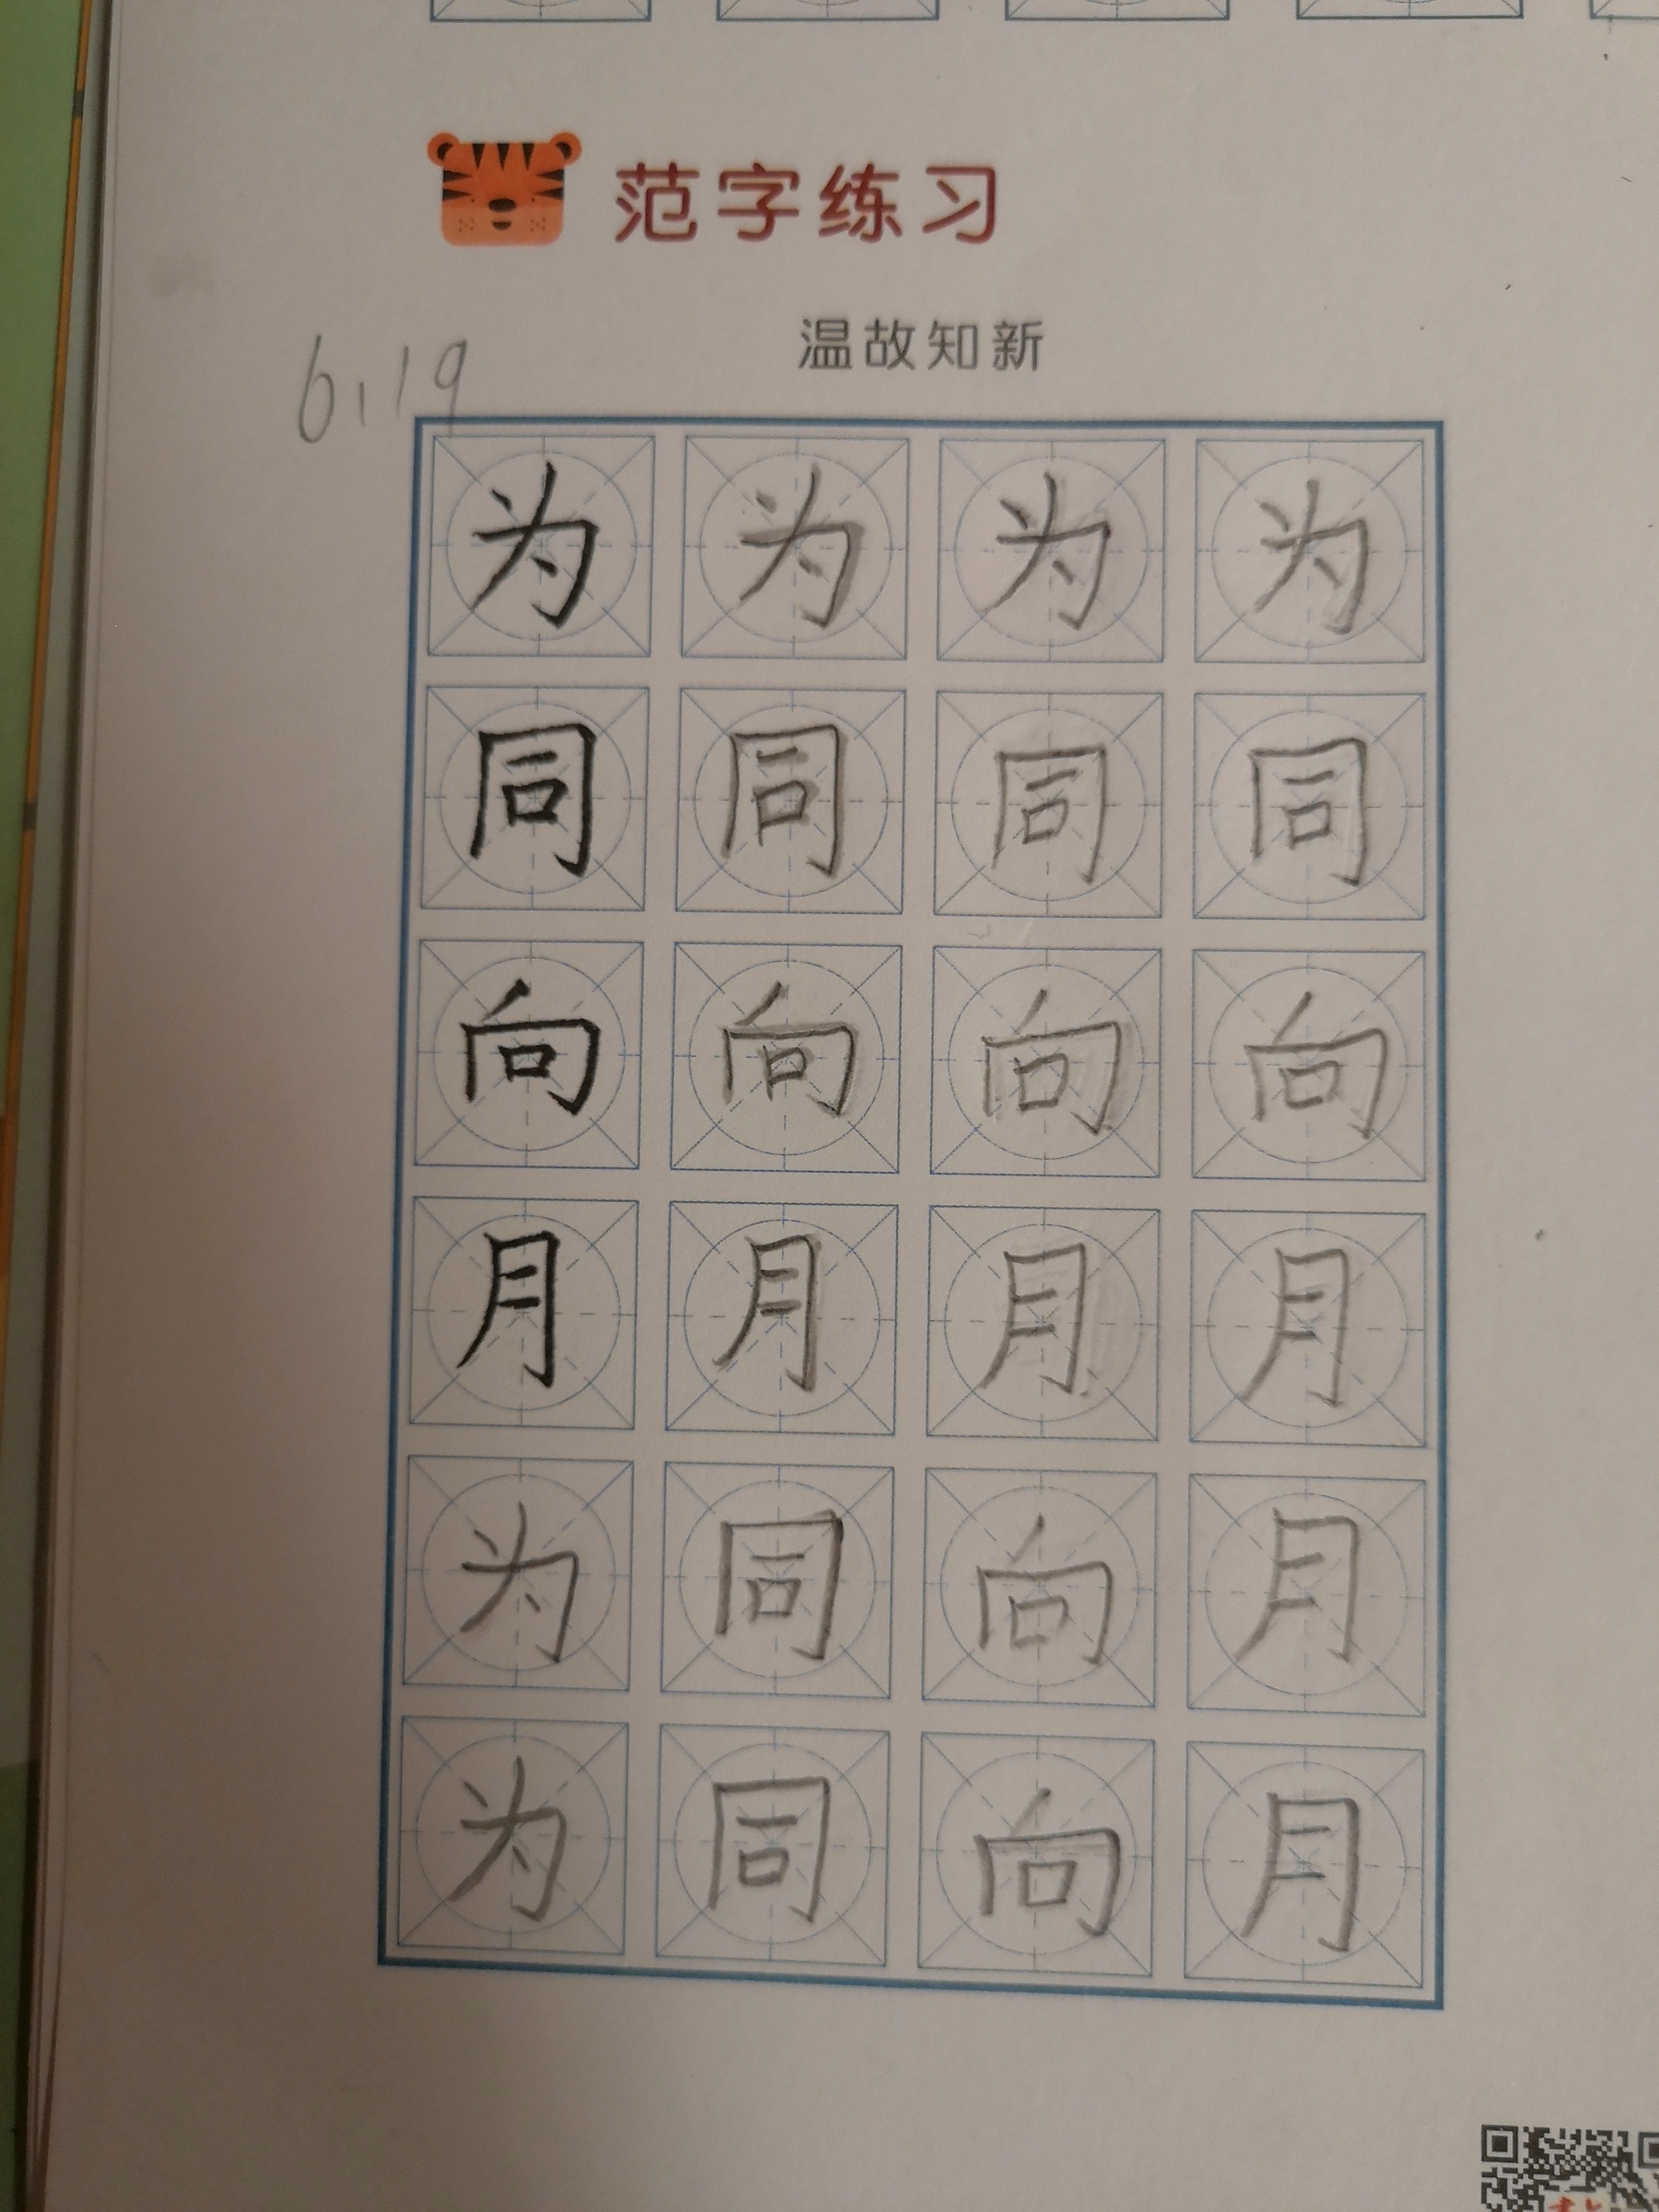 范字练习
温故知新
6.19
为 为 为 为
同 同 同 同
向 向 向 向
月 月 月 月
为 同 向 月
为 同 向 月